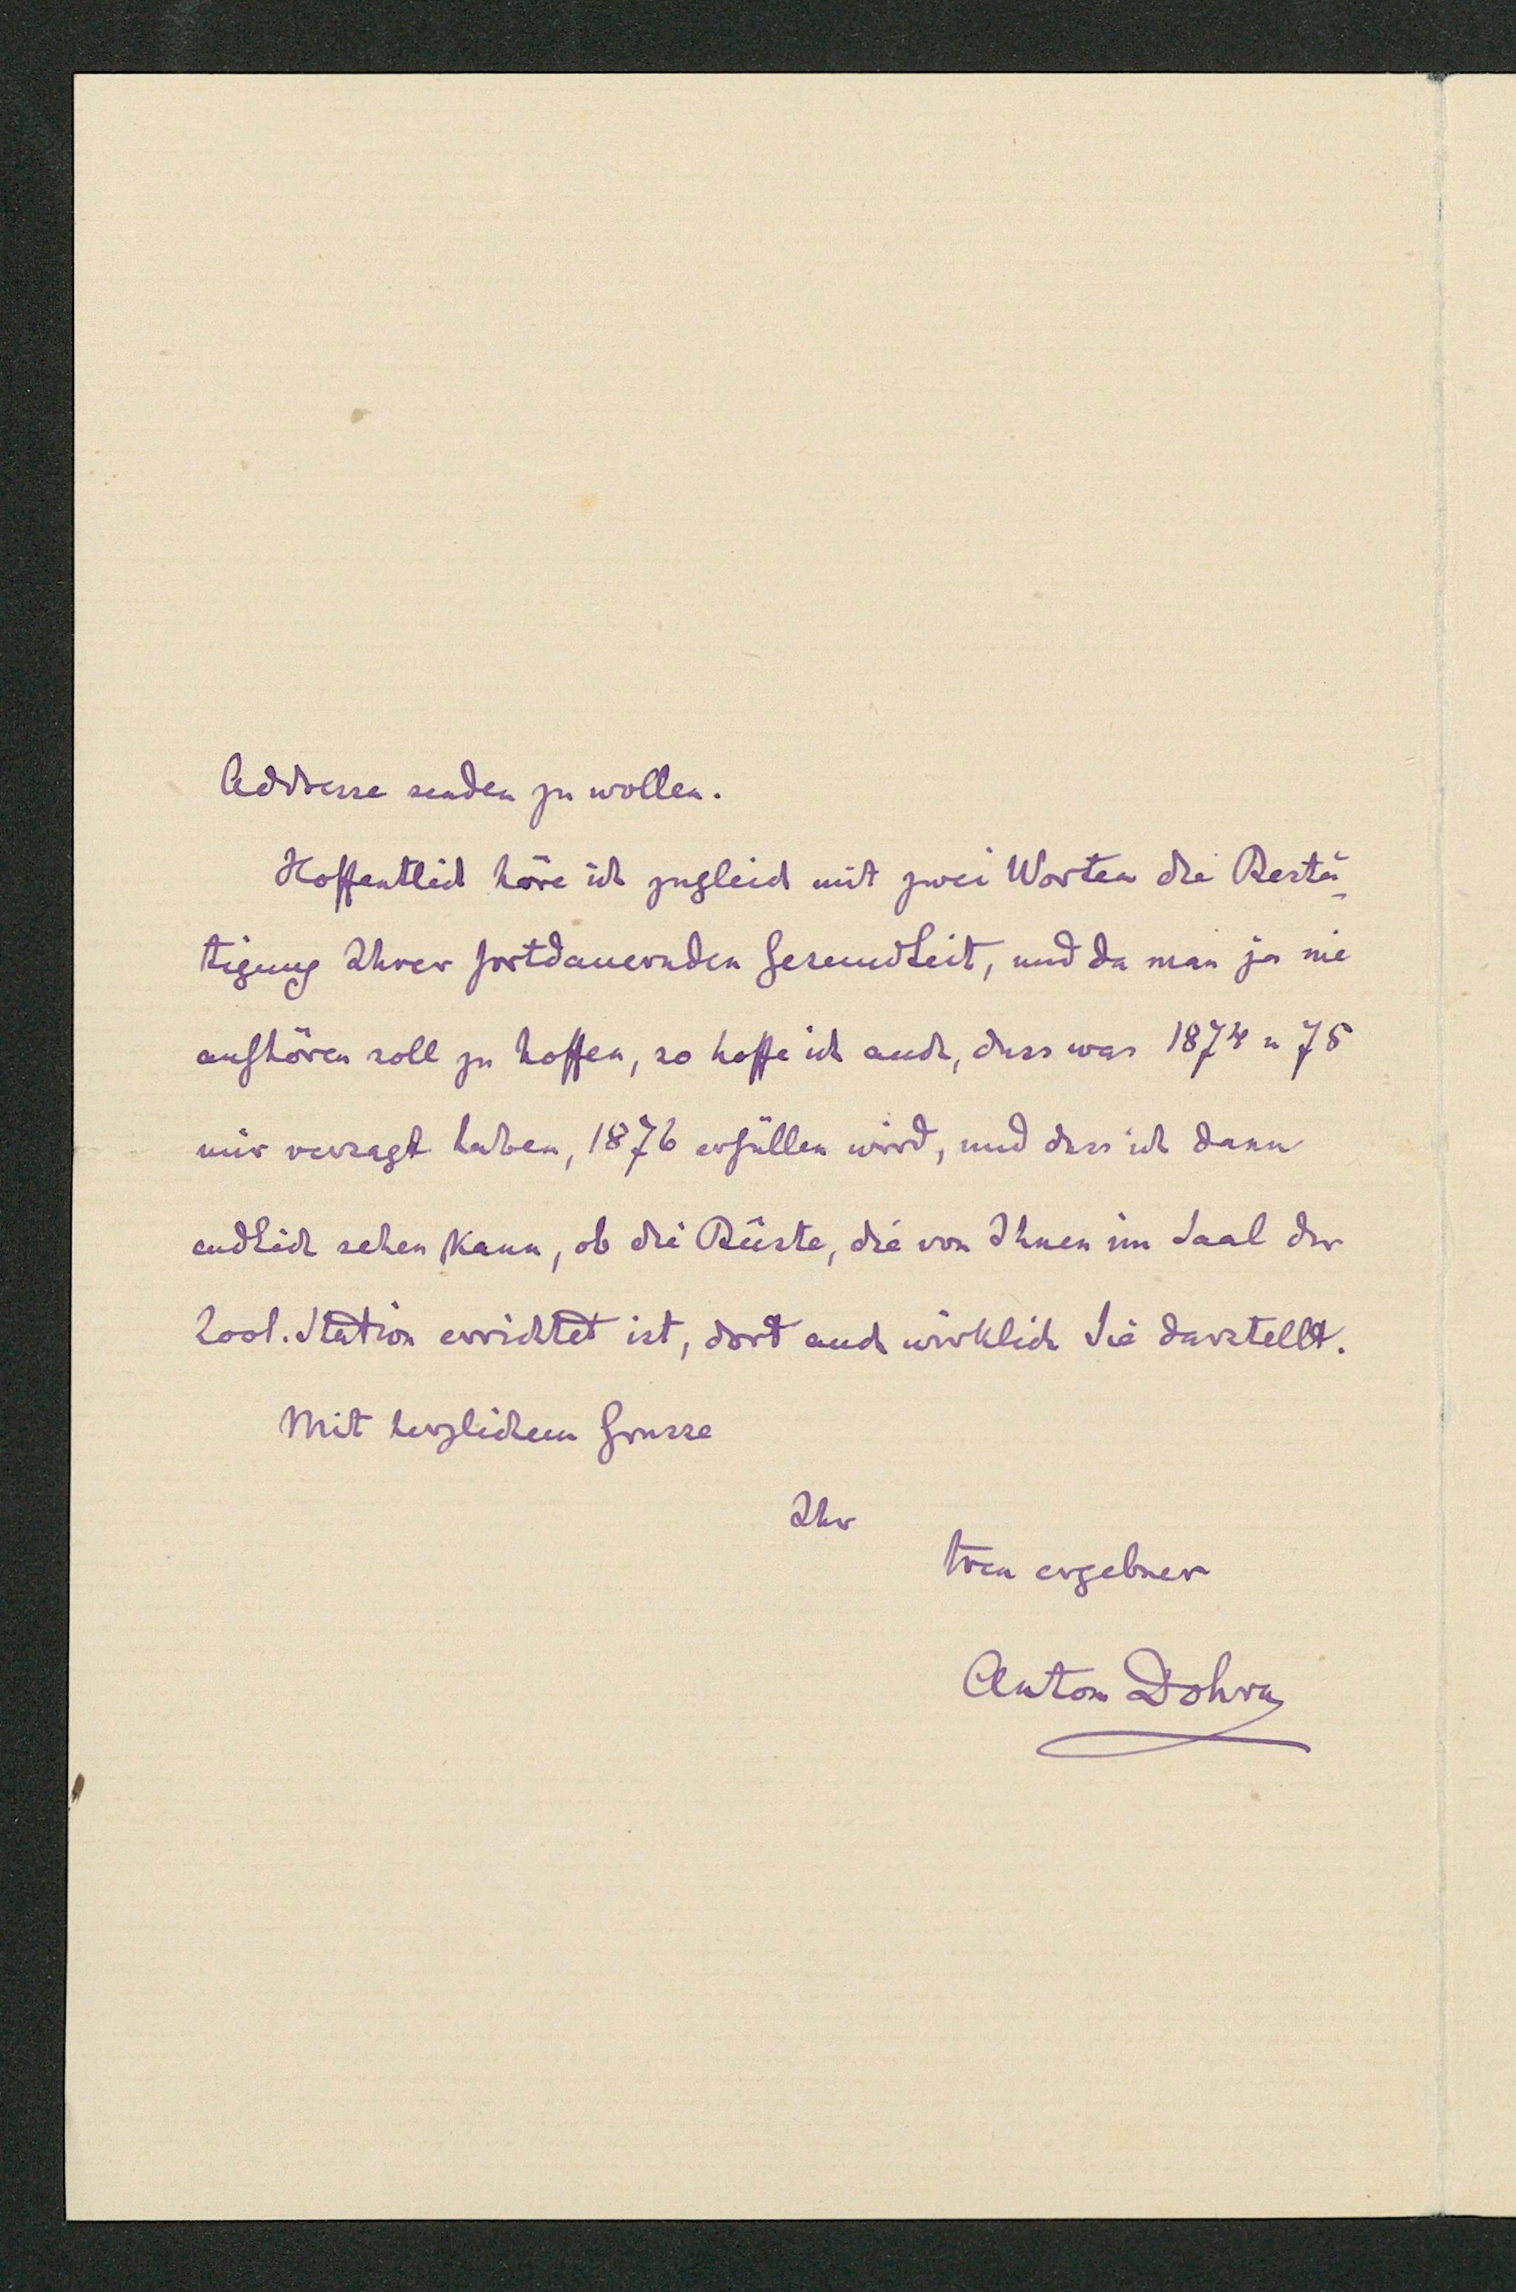 Addresse senden zu wollen.
Hoffentlich höre ich zugleich mit zwei Worten die Bestä-
tigung Ihrer fortdauernden Gesundheit, und da man ja nie
aufhören soll zu hoffen, so hoffe ich auch, dass was 1874 u 75
mir versagt haben, 1876 erfüllen wird, und dass ich dann
endlich sehen kann, ob die Büste, die von Ihnen im Saal der
Zool. Station errichtet ist, dort auch wirklich Sie darstellt.
Mit herzlichem Grusse
Ihr
treu ergebner
Anton Dohrn